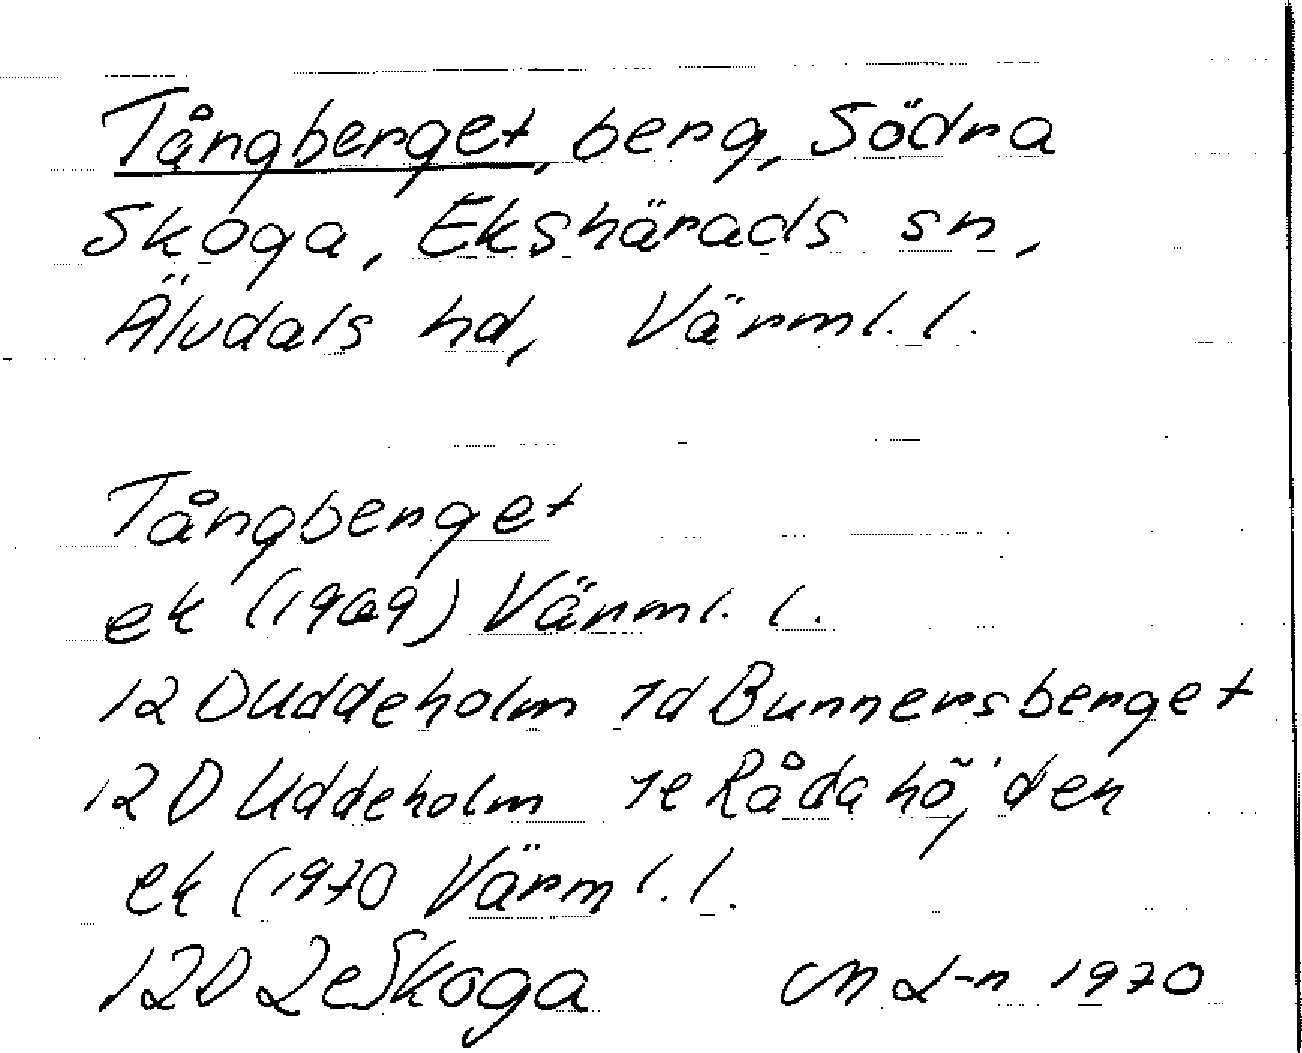 Tångberget, berg, Södra
Skoga, Ekshärads sn,
Älvdals hd, Värml. l.
Tångberget
ek (1969) Värml. l.
12 D Uddeholm 1d Bunnersberget
12 D Uddeholm 1e Rådahöjden
ek (1970 Värml. l.
12D 2e Skoga M L-n 1970